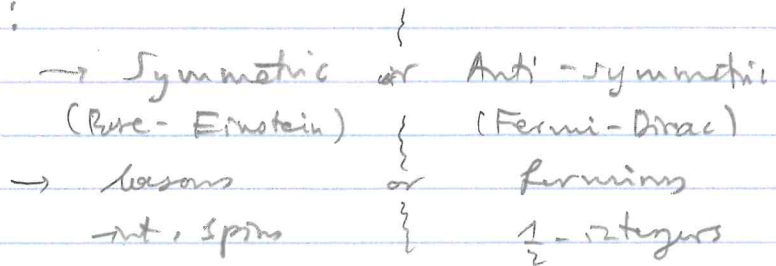 :
→ Symmetric or Anti-symmetric
(Bose-Einstein) (Fermi-Dirac)
→ bosons or fermions
int. spins 1/2-integers